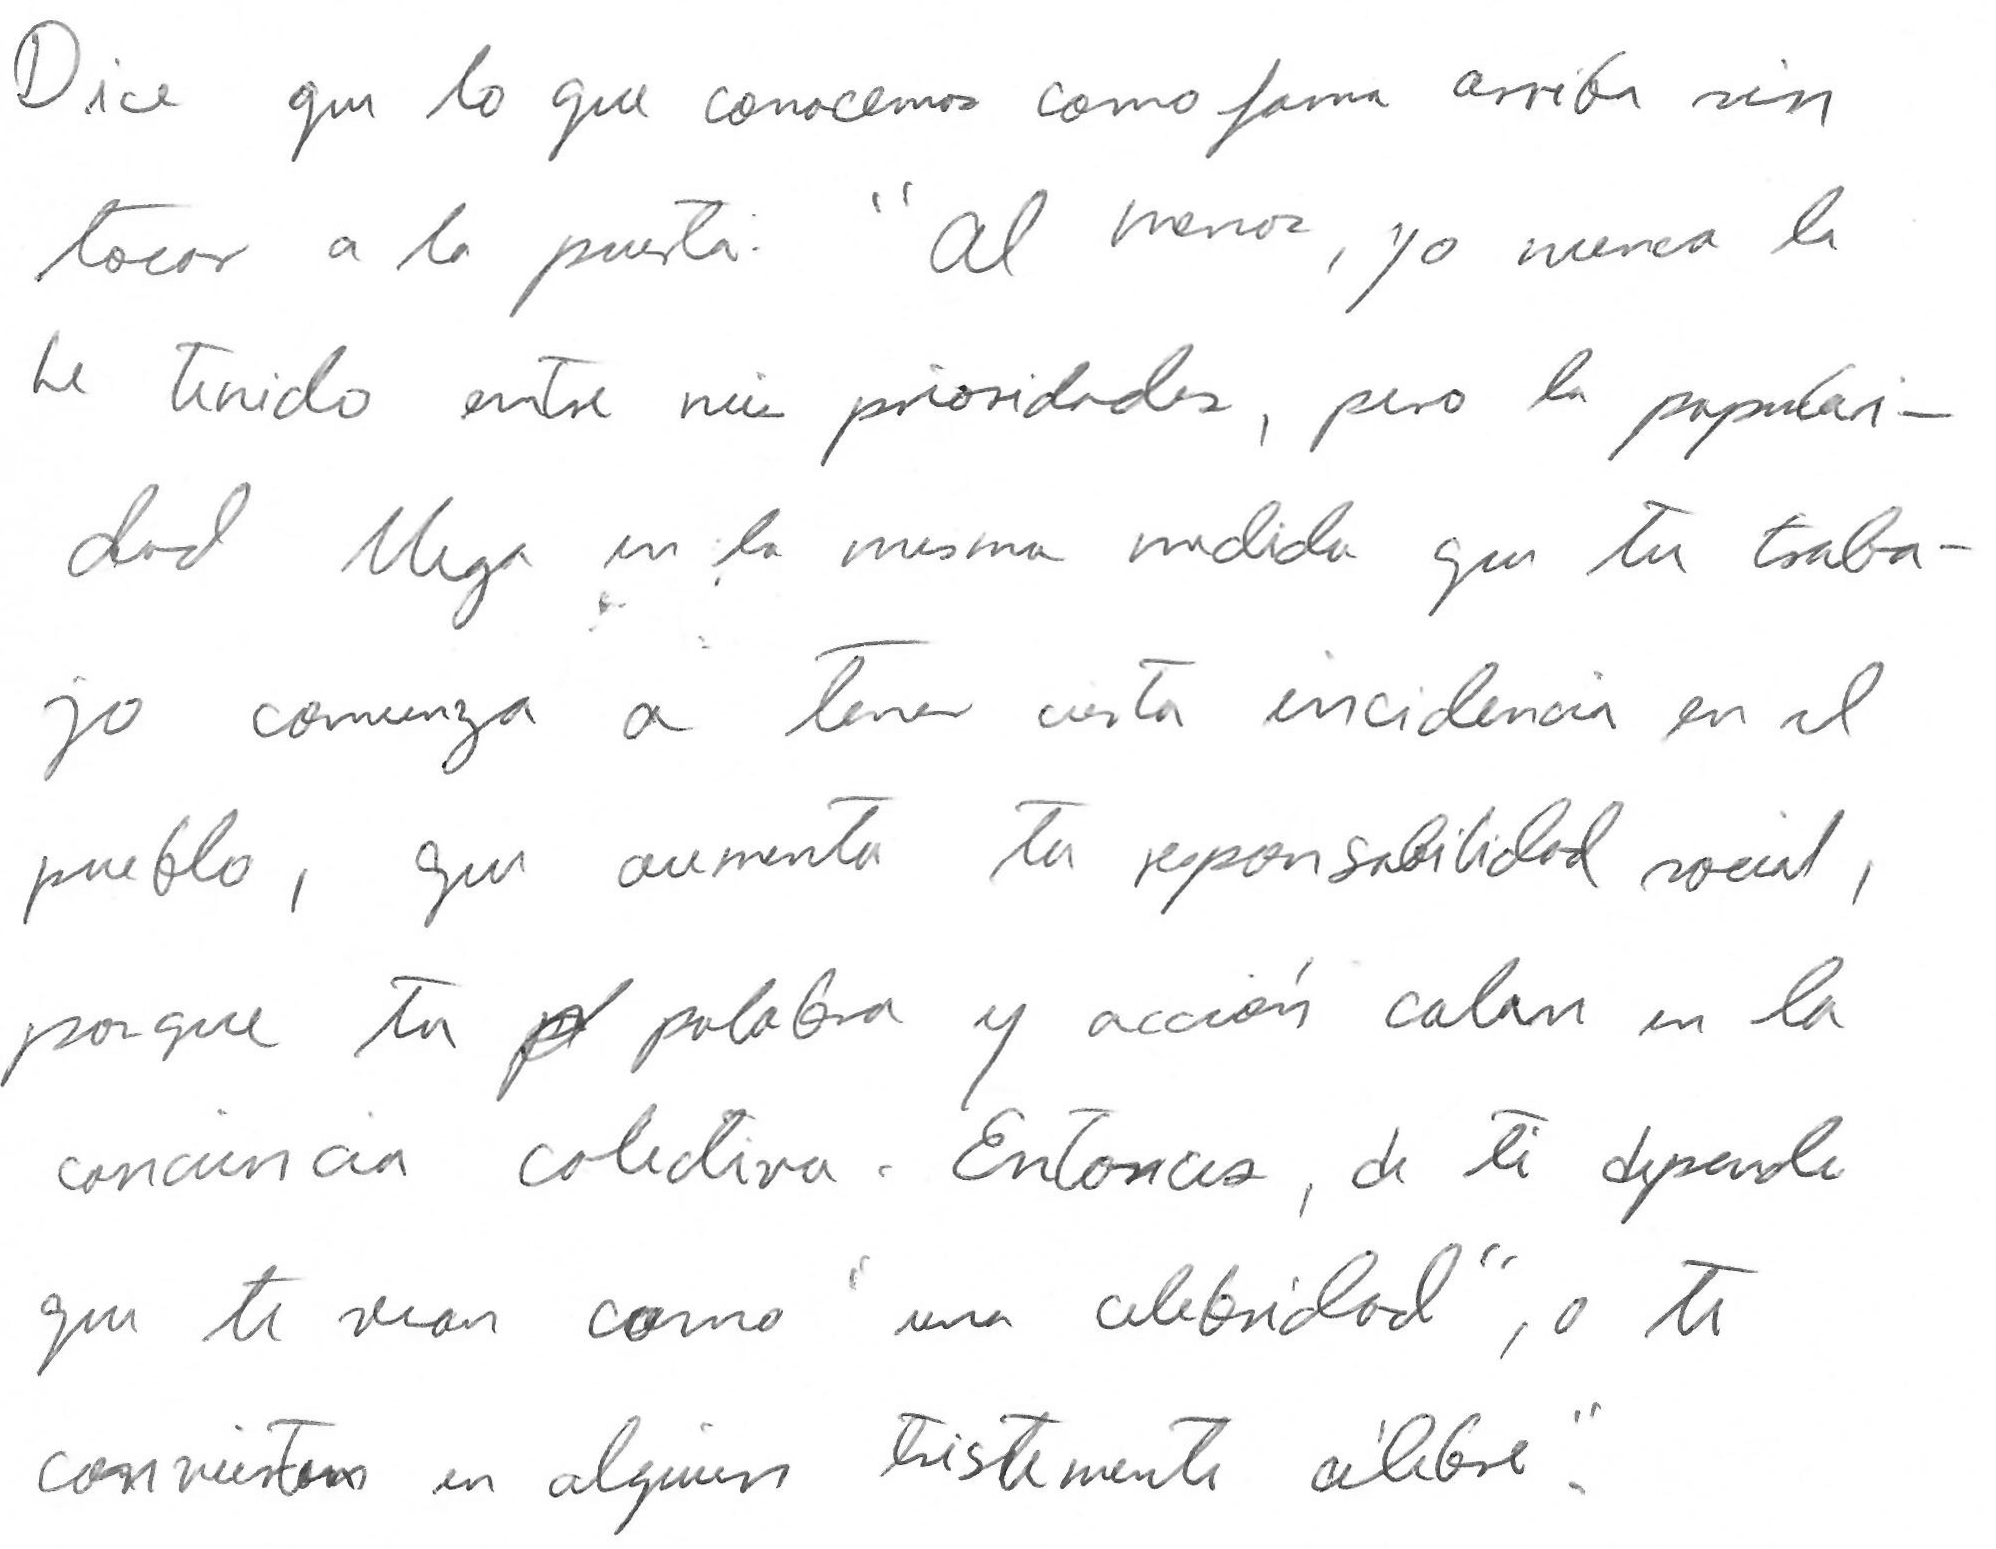 Dice que lo que conocemos como fama arriba sin
tocar a la puerta. "Al menos, yo nunca la
he tenido entre mis prioridades, pero la populari-
dad llega en la misma medida que tu traba-
jo comienza a tener cierta incidencia en el
pueblo, que aumenta tu responsabilidad social,
porque tu palabra y acción calan en la
conciencia colectiva. Entonces, de ti depende
que te vean como "una celebridad", o te
conviertan en alguien tristemente célebre".